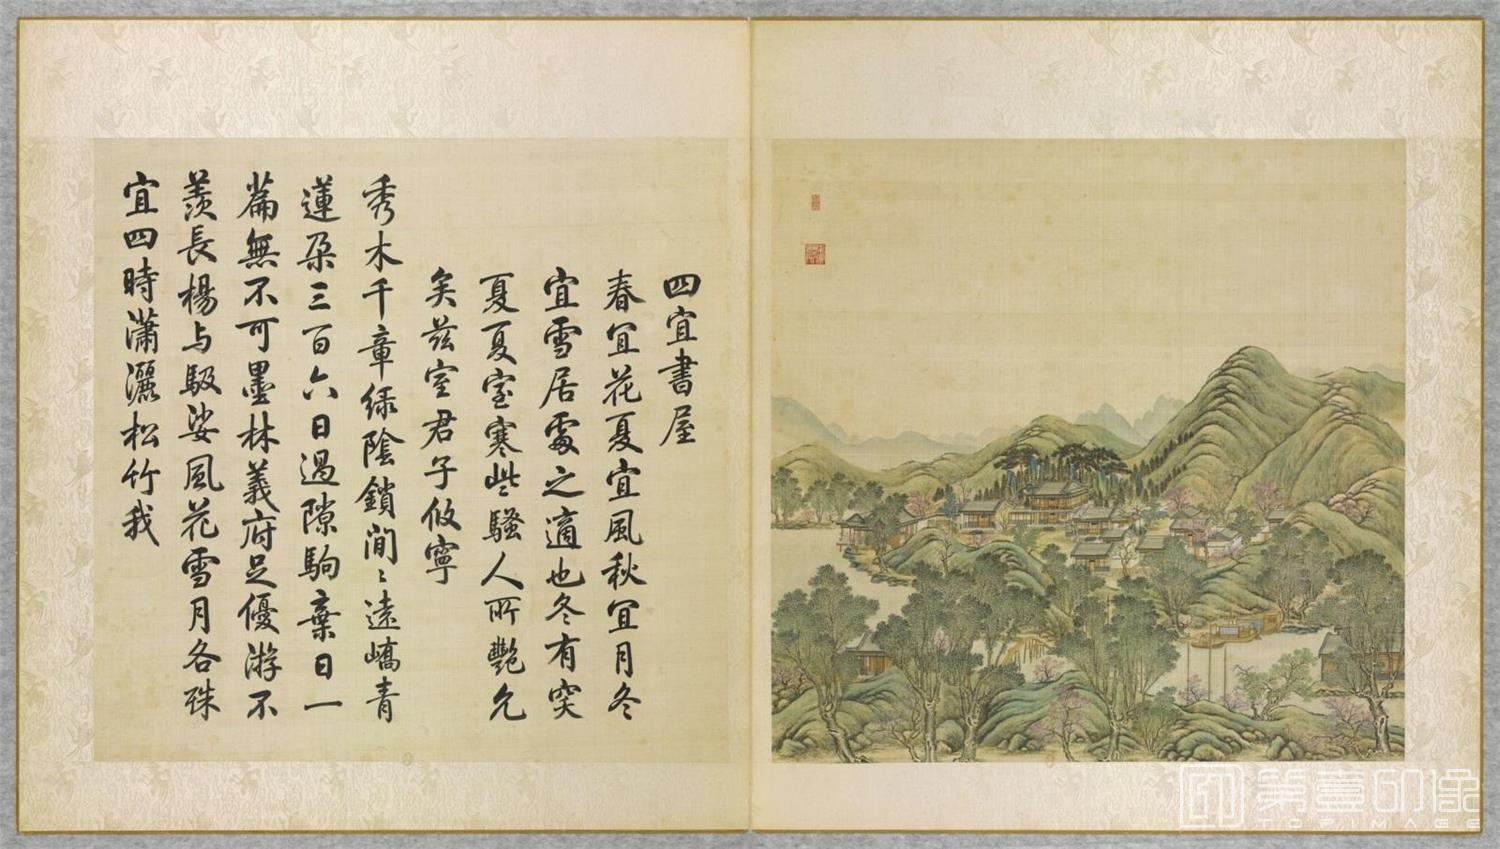 四宜書屋
春宜花夏宜風秋宜月冬
宜雪居處之適也冬有突
夏夏室寒些騷人所艷允
矣茲室君子攸寧
秀木千章綠陰鎖間〻遠嶠青
蓮朶三百六日過隙駒棄日一
篇無不可墨林義府足優游不
羨長楊与馺娑風花雪月各殊
宜四時瀟灑松竹我
第壹印像
TOPIMAGE